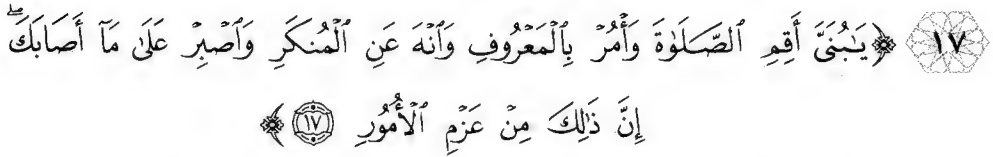 ١٧ ﴿يَٰبُنَىَّ أَقِمِ ٱلصَّلَوٰةَ وَأۡمُرۡ بِٱلۡمَعۡرُوفِ وَٱنۡهَ عَنِ ٱلۡمُنكَرِ وَٱصۡبِرۡ عَلَىٰ مَآ أَصَابَكَۖ
إِنَّ ذَٰلِكَ مِنۡ عَزۡمِ ٱلۡأُمُورِ ١٧﴾